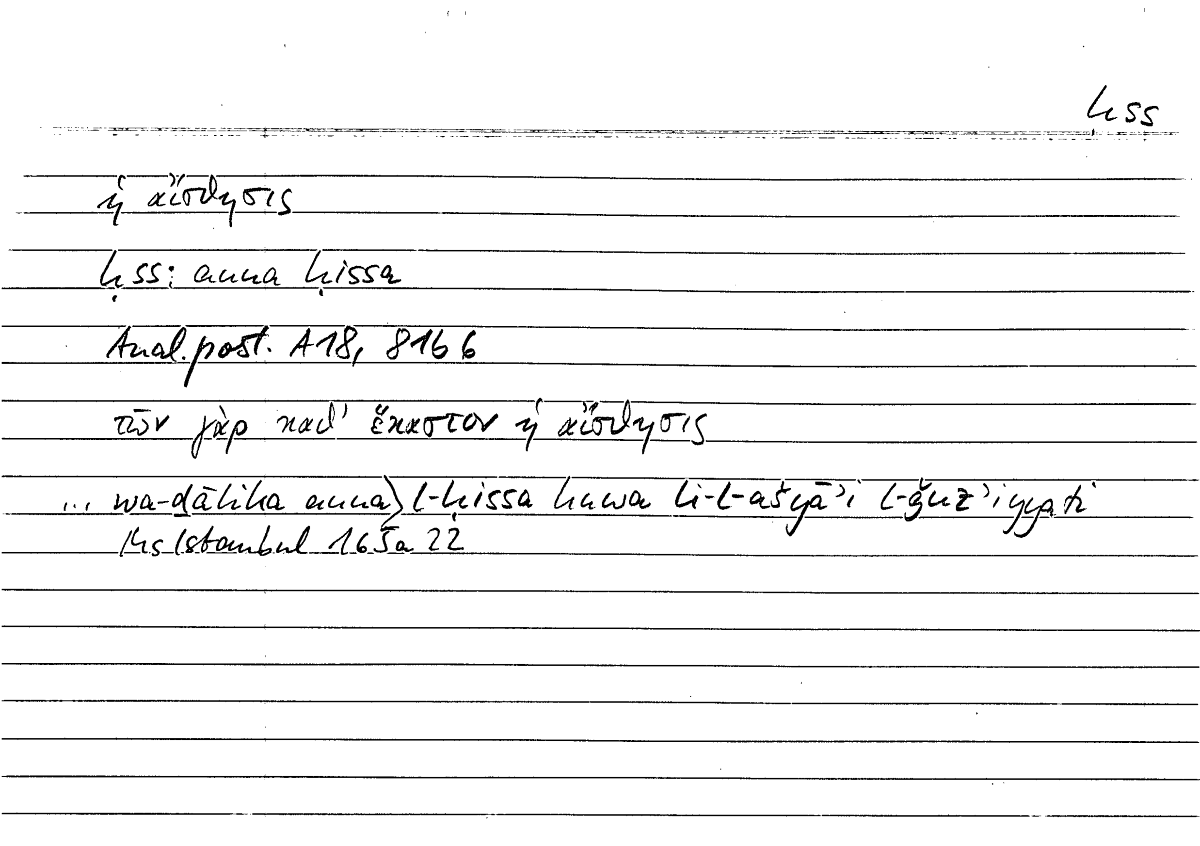 ḥss
ἡ αἴσθησις
ḥss: anna ḥissa
Anal. post. A18, 81b6
τῶν γὰρ καθ' ἕκαστον ἡ αἴσθησις
... wa-ḏālika anna⟩ l-ḥissa huwa li-l-ašyā’i l-ǧuz’iyyati
Ms Istanbul 165a 22